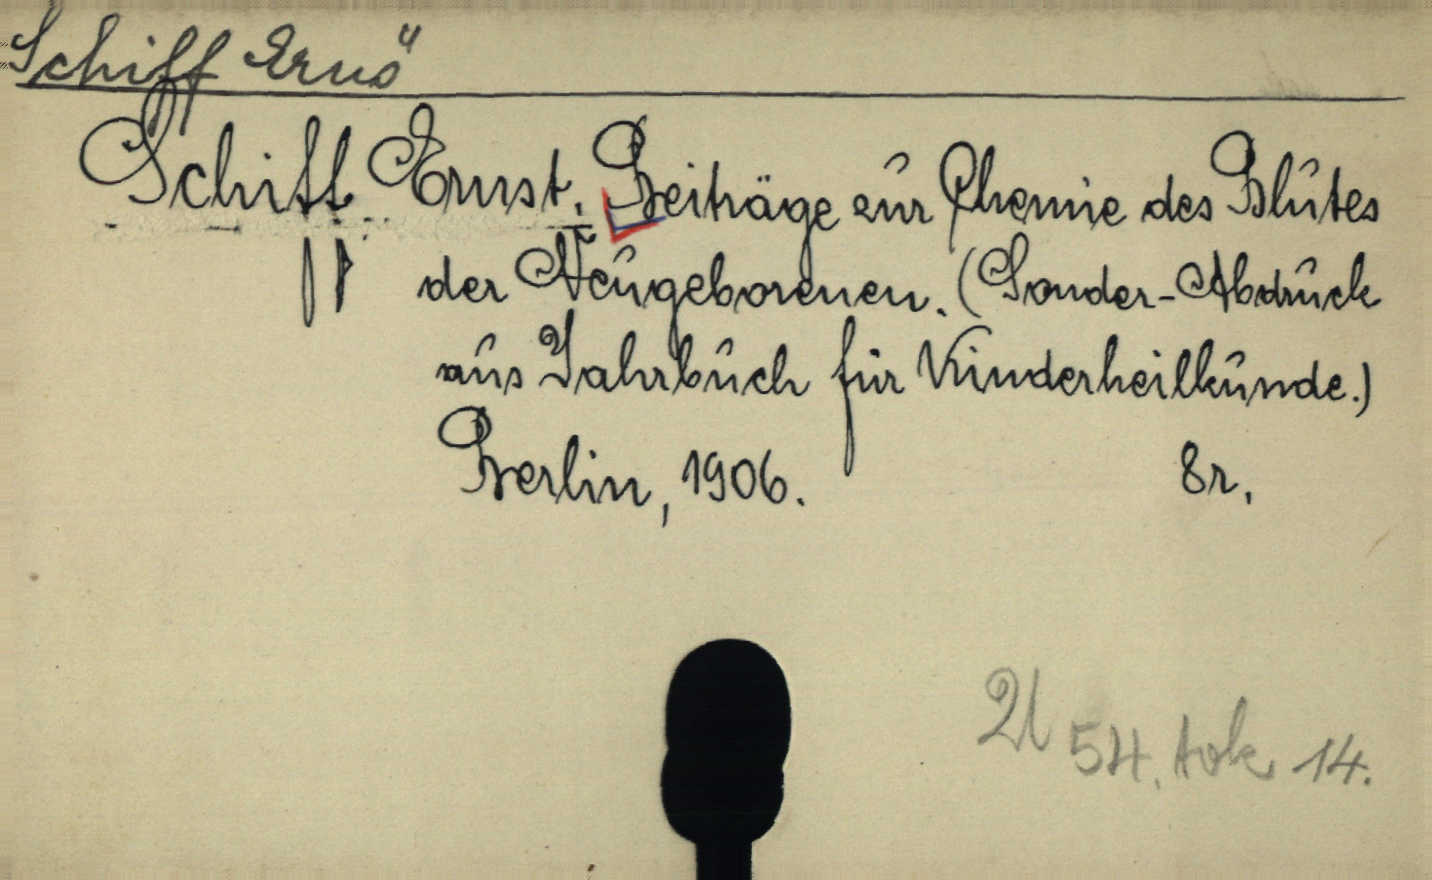 Schiff Ernő
Schiff Ernst. Beiträge zur Chemie des Blutes
der Neugeborenen. (Sonder-Abdruck
aus Jahrbuch für Kinderheilkunde.)
Berlin, 1906. 8r.
54. tok 14.